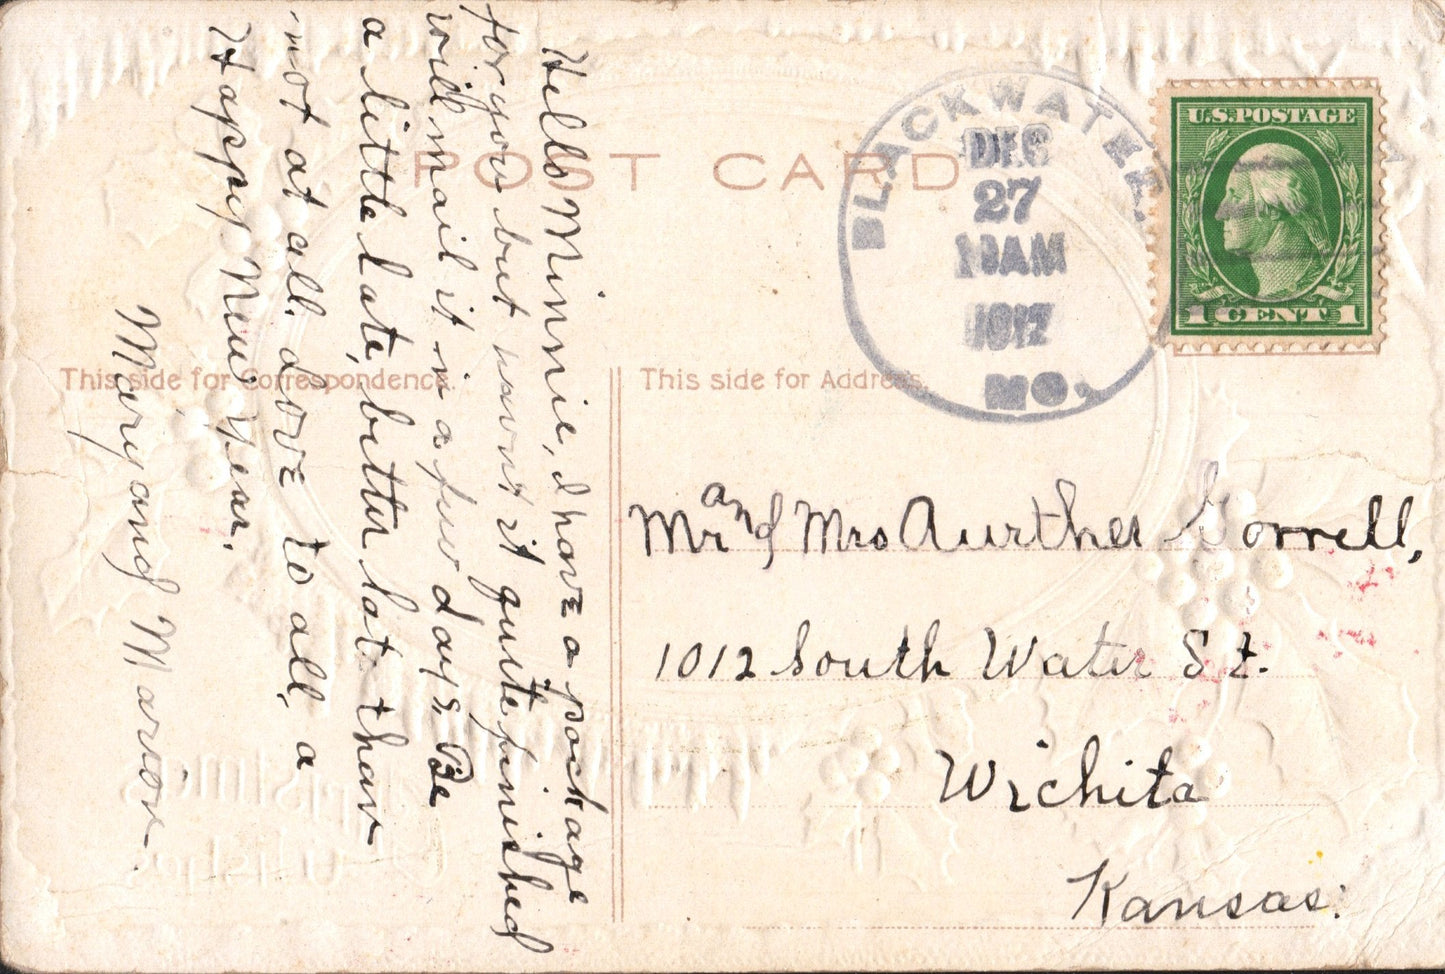 POST CARD
This side for Correspondence.
This side for Address.
BLACKWATER
DEC
27
10AM
1912
MO.
U.S. POSTAGE
1 CENT 1
Hello Minnie, I have a package
for you but havent it quite finished
will mail it in a few days. Be
a little late, better lat than
not at all. Love to all, a
Happy New Year.
Mary and Marion
Mr and Mrs Aurther Gorrell,
1012 South Water St.
Wichita
Kansas.